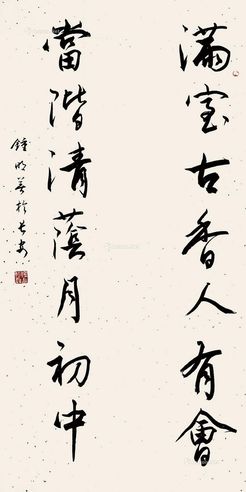 滿室古香人有會
當階清蔭月初中
鍾明善於長安